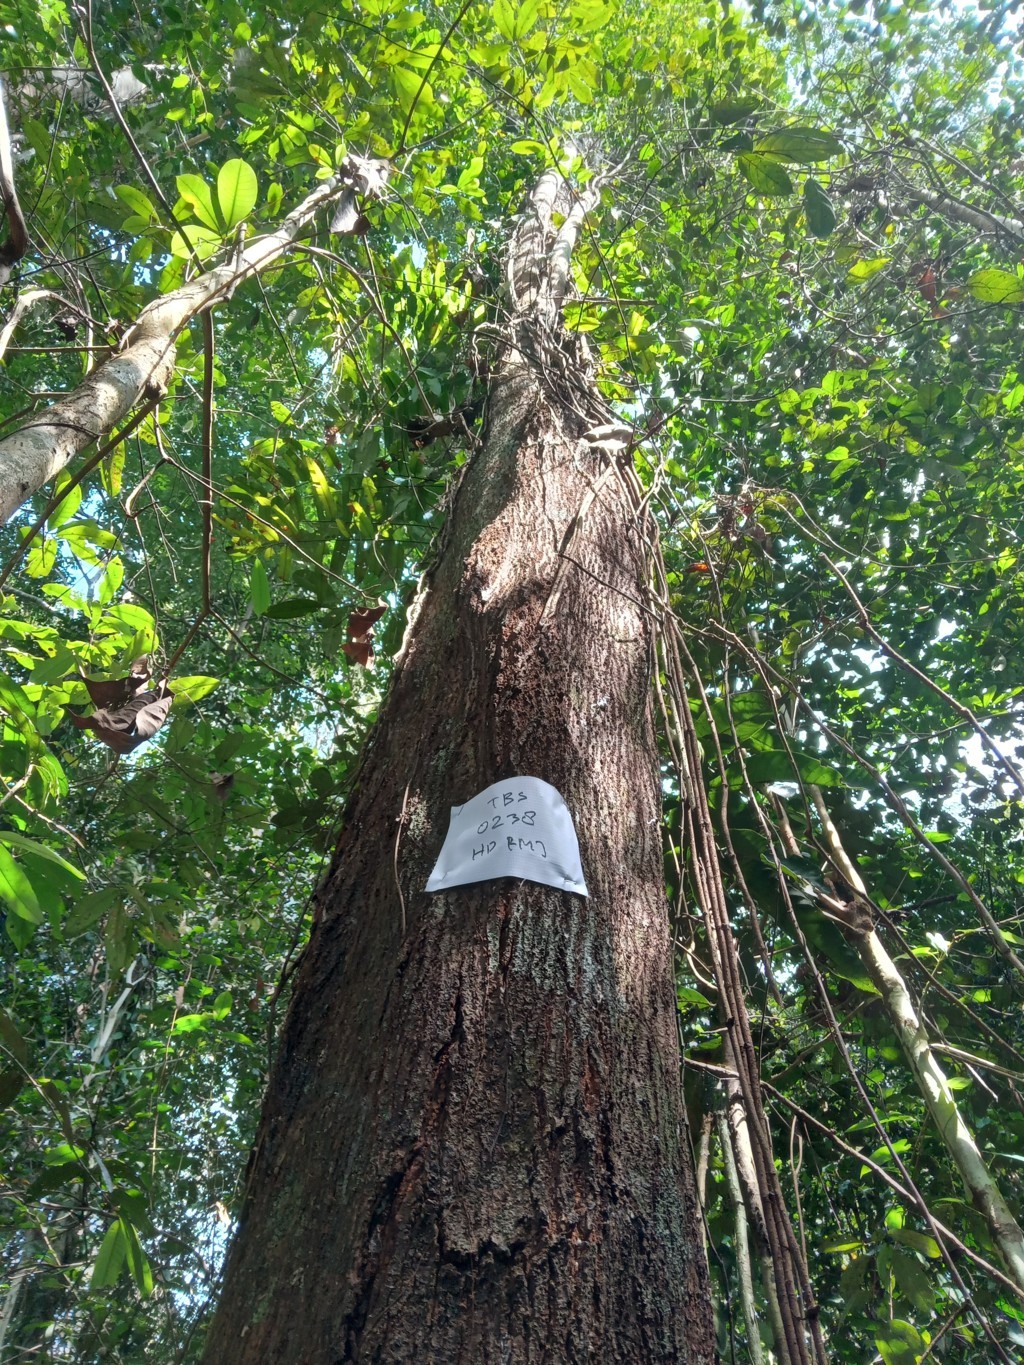 TBS
0238
HD RMJ